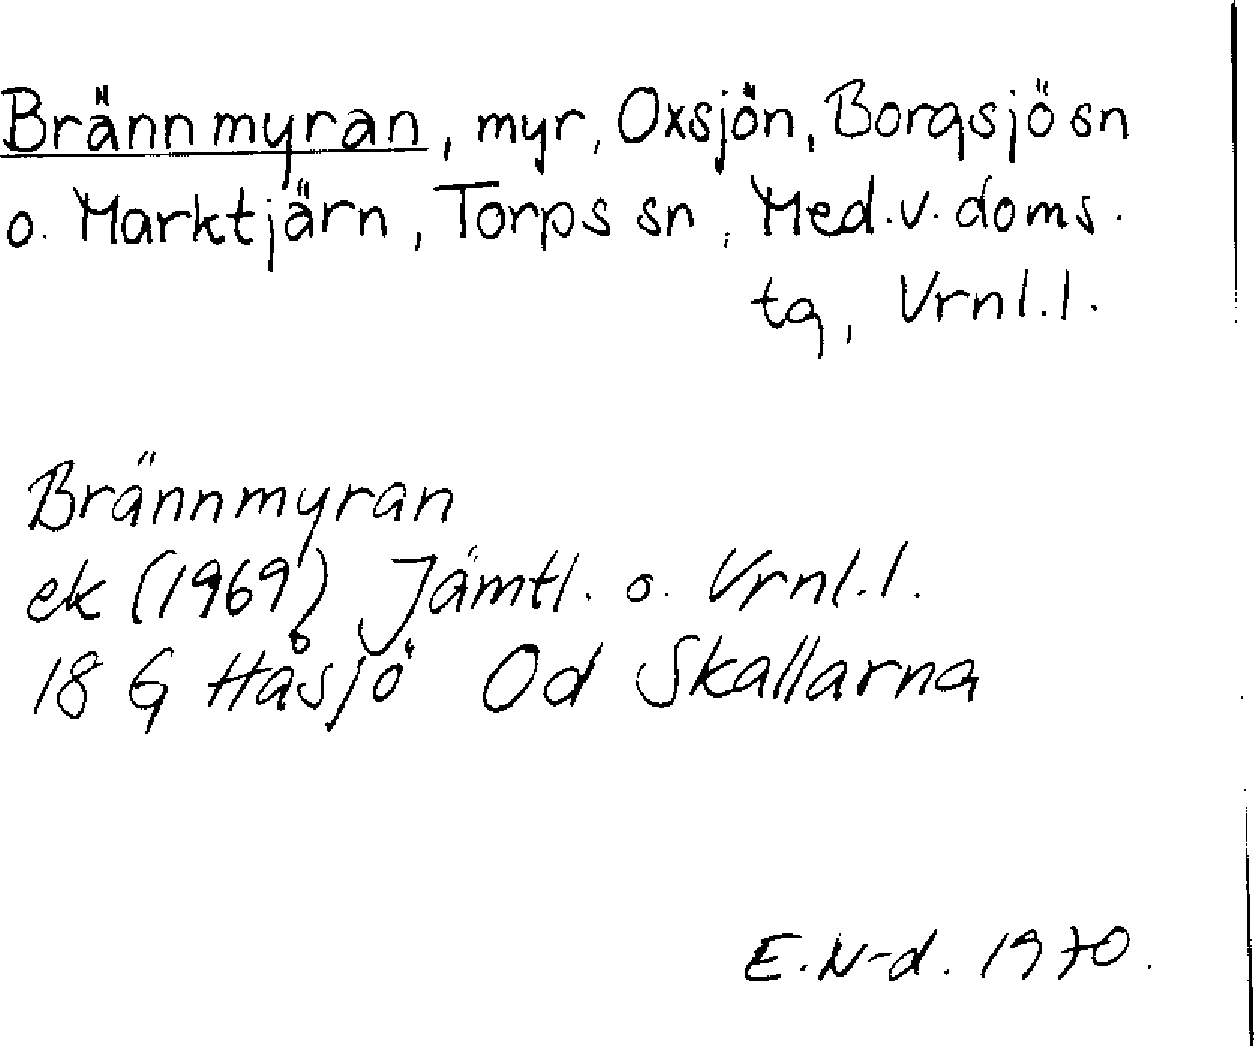 Brännmyran, myr, Oxsjön, Borgsjö sn
o. Marktjärn, Torps sn, Med. v. doms.
tg, Vrnl.l.
Brännmyran
ek (1969) Jämtl. o. Vrnl.l.
18 G Håsjö Od Skallarna
E.N-d. 1970.